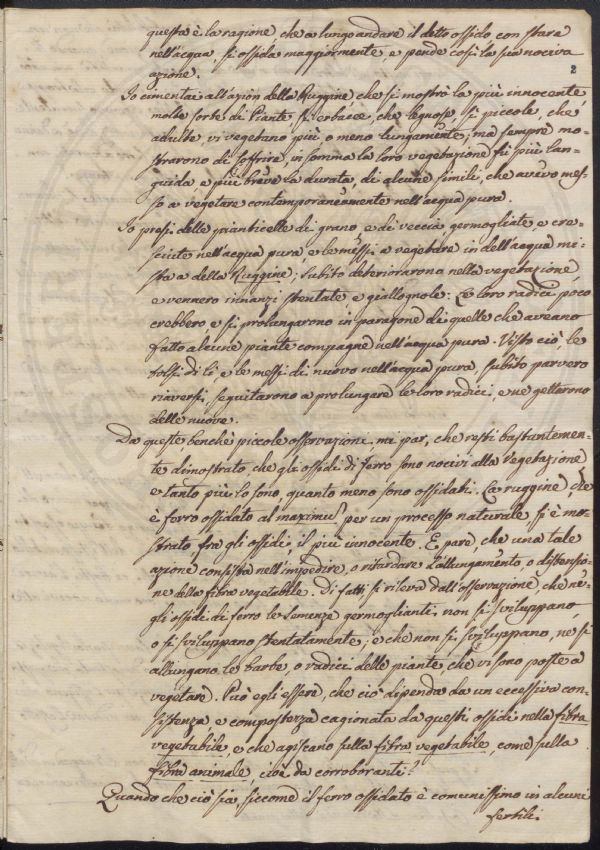 2
questa è la ragione, che a lungo andare il detto ossido con stare
nell'acqua, si ossida maggiormente, e perde così la sua nociva
azione.
Io cimentai all'azion della Ruggine che si mostrò la più innocente
molte sorte di Piante sì erbacee, che legnose, sì piccole, che
adulte, vi vegetano più o meno lungamente; ma sempre mo-
strarono di soffrire, in somma la loro vegetazione fù più lan-
guida e più breve la durata, di alcune simili, che avevo mes-
so a vegetare contemporaneamente nell'acqua pura.
Io presi delle pianticelle di grano, e di veccia, germogliate, e cre-
sciute nell'acqua pura, e le missi a vegetare in dell'acqua mi-
sta a della Ruggine; subito deteriorarono nella vegetazione
e vennero innanzi stentate, e giallognole: Le loro radici poco
crebbero, e si prolungarono in paragone di quelle che aveano
fatto alcune piante compagne nell'acqua pura. Visto ciò le
tolsi di lì e le messi di nuovo nell'acqua pura, subito parvero
riaversi, seguitarono a prolungare le loro radici, e ne gettarono
delle nuove.
Da queste, benchè piccole osservazione, mi par, che resti bastantemen-
te dimostrato, che gli ossidi di ferro sono nocivi alla Vegetazione
e tanto più lo sono, quanto meno sono ossidati. La ruggine, che
è ferro ossidato al maximũ, per un processo naturale si è mo-
strato fra gli ossidi, il più innocente. E pare, che una tale
azione consista nell'impedire, o ritardare l'allungamento, o distensio-
ne della fibra vegetabile. Di fatti si rileva dall'osservazione, che ne-
gli ossidi di ferro le semenze germoglianti non si sviluppano,
o si sviluppano stentatamente; e che non si sviluppano, ne si
allungano le barbe, o radici delle piante, che vi sono poste a
vegetare. Può egli essere, che ciò dipenda da un eccessiva con-
sistenza e compostezza cagionata da questi ossidi nella fibra
vegetabile, e che agiscano sulla fibra vegetabile, come sulla
fibra animale, cioè da corroboranti?
Quando che ciò sia, siccome il ferro ossidato è comunissimo in alcuni
fertili